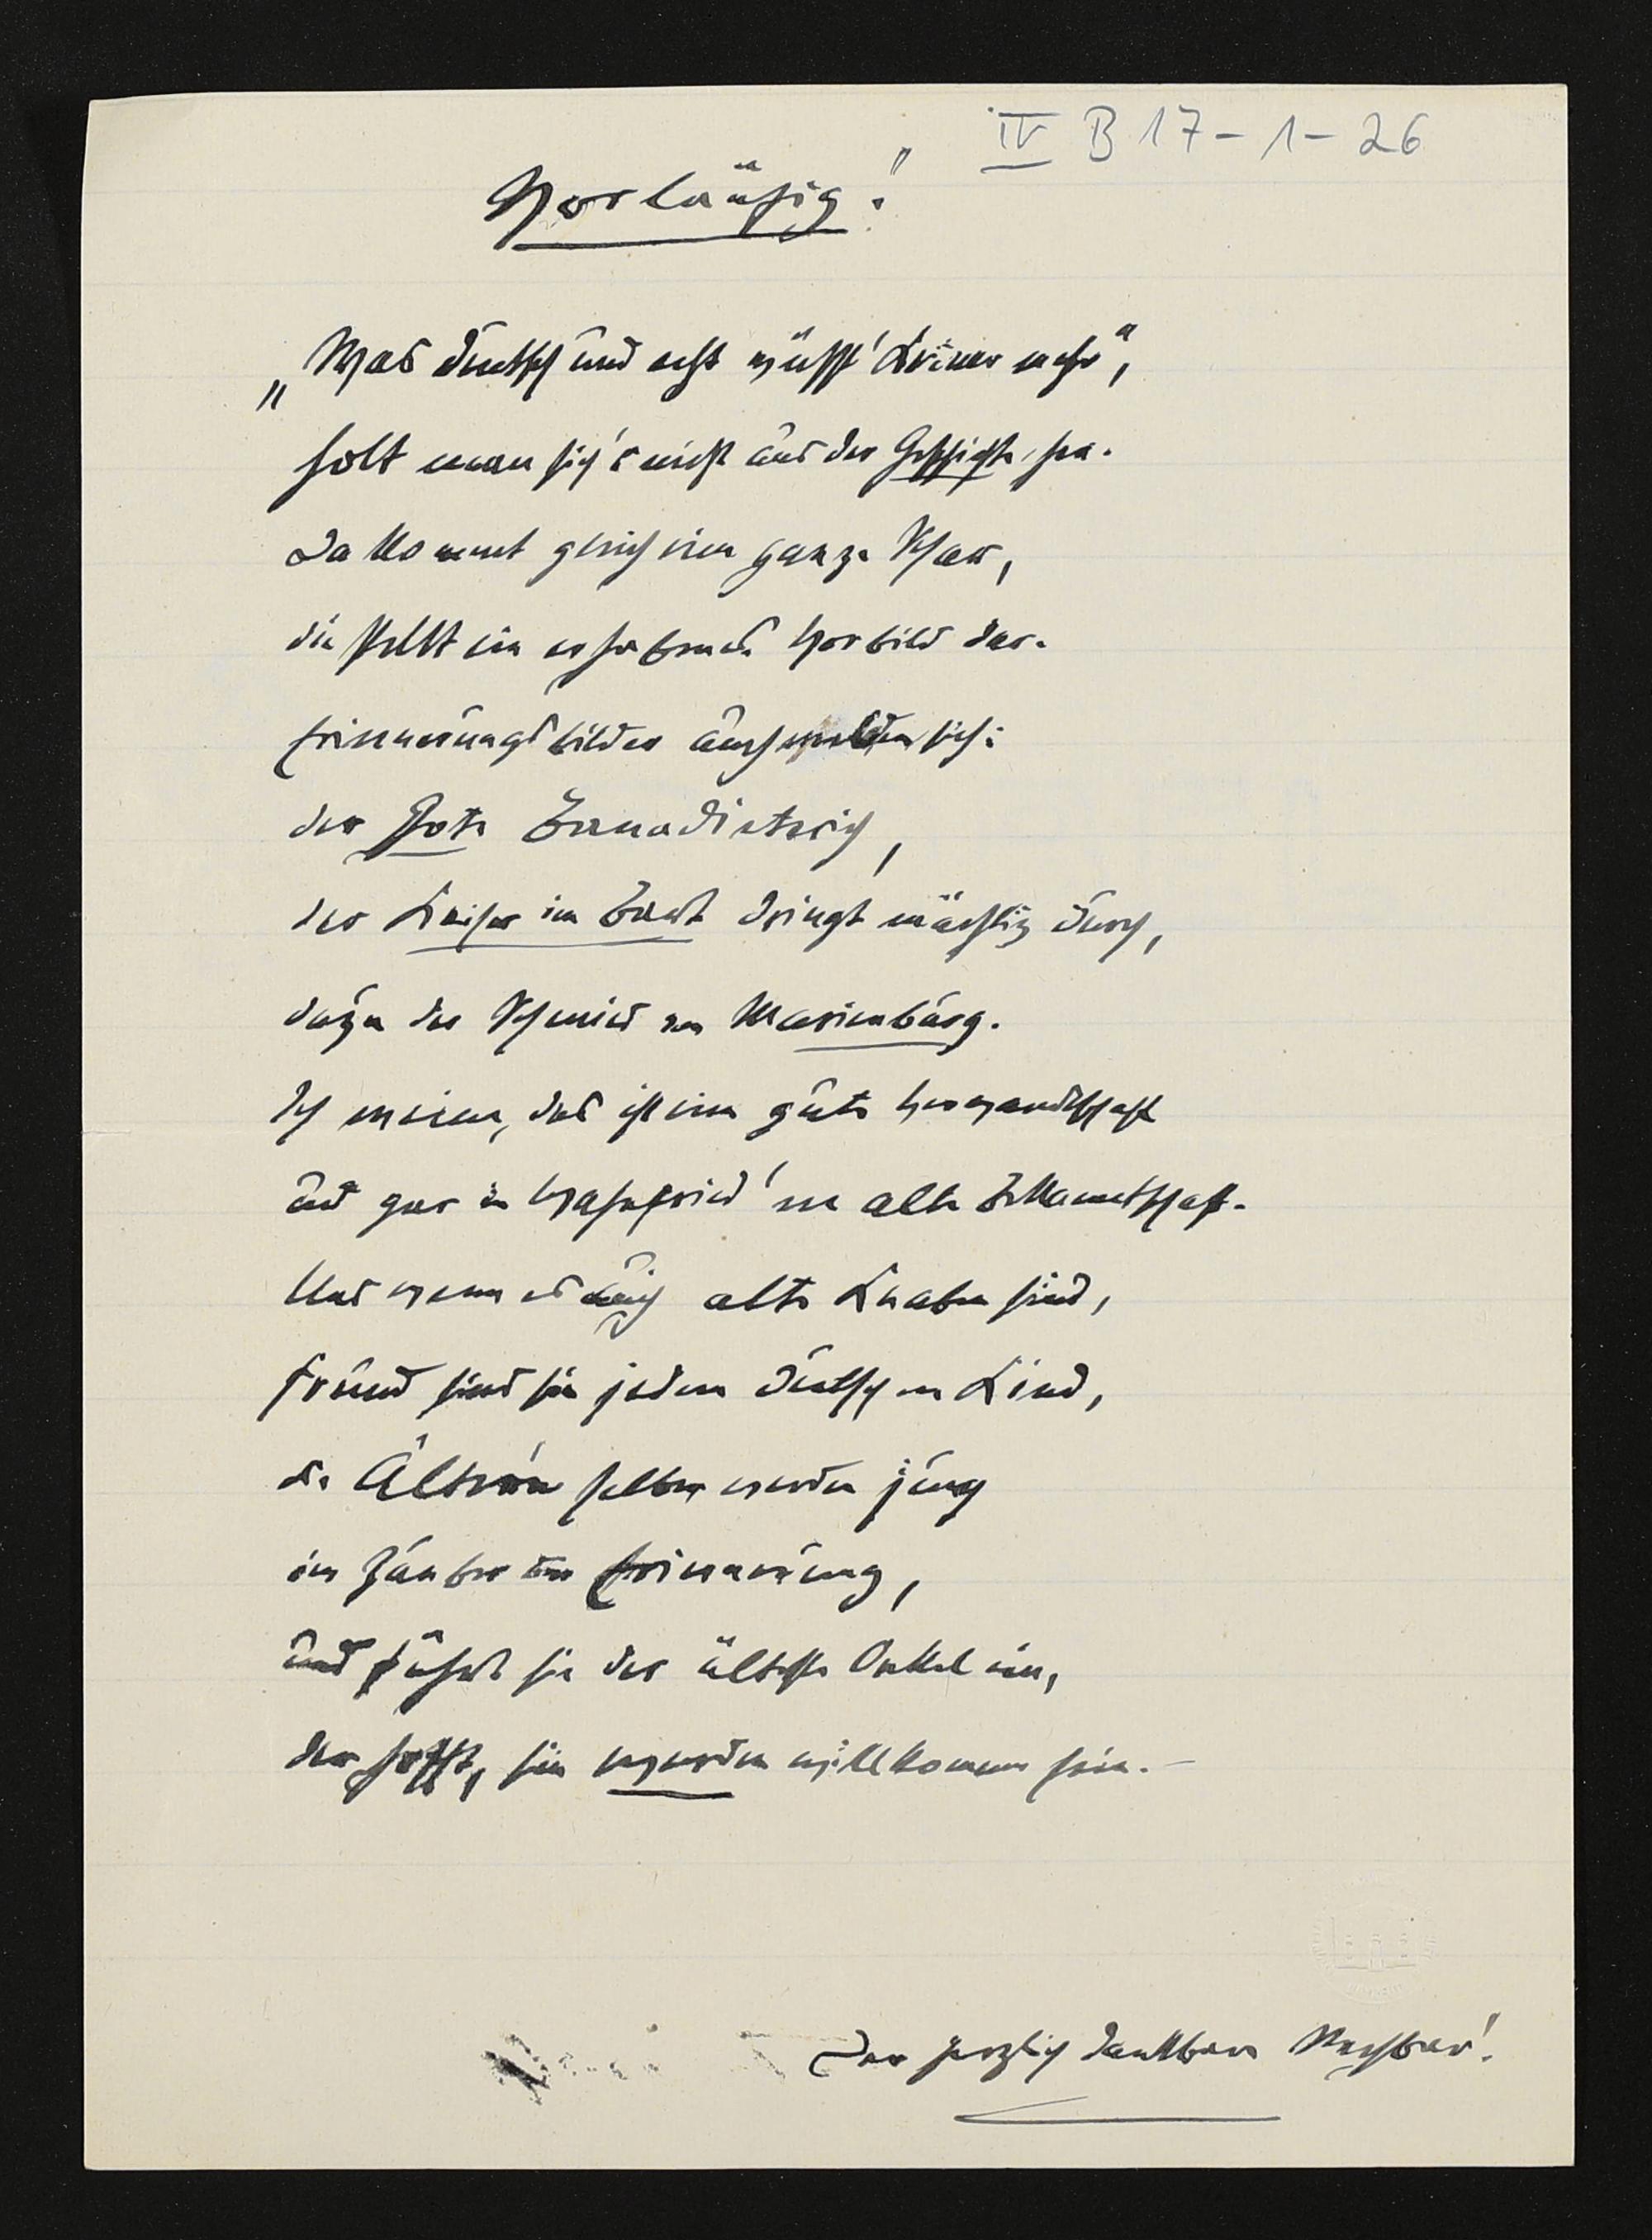 IV B 17-1-26
Vorläufig!
„Was deutsch und echt wüsst' Keiner mehr",
holt man sich's nicht aus der Geschichte her.
Da kommt gleich eine ganze Schar,
die stellt ein erhabenes Vorbild dar.
Erinnerungsbilder auch melden sich:
der Gote Bernadietrich,
der Kaiser im Bart dringt mächtig durch,
dazu der Schmied von Marienburg.
Ich meine, das ist eine gute Verwandtschaft
und gar in Wahnfried 'ne alte Bekanntschaft.
Und wenn es auch alte Knaben sind,
Freund sind sie jedem deutschen Kind,
die Älteren selber werden jung
im Zauber der Erinnerung,
und führt sie der älteste Onkel ein,
der hofft, sie werden willkommen sein.—
Der herzlich dankbare Nachbar!